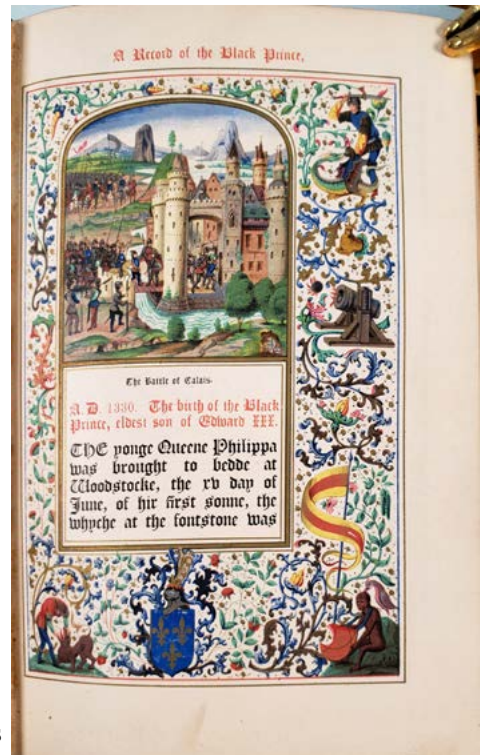 A Record of the Black Prince,
The Battle of Calais.
A. D. 1330. The birth of the Black
Prince, eldest son of Edward III.
THE yonge Queene Philippa
was brought to bedde at
Woodstocke, the xv day of
June, of hir first sonne, the
whyche at the fontstone was